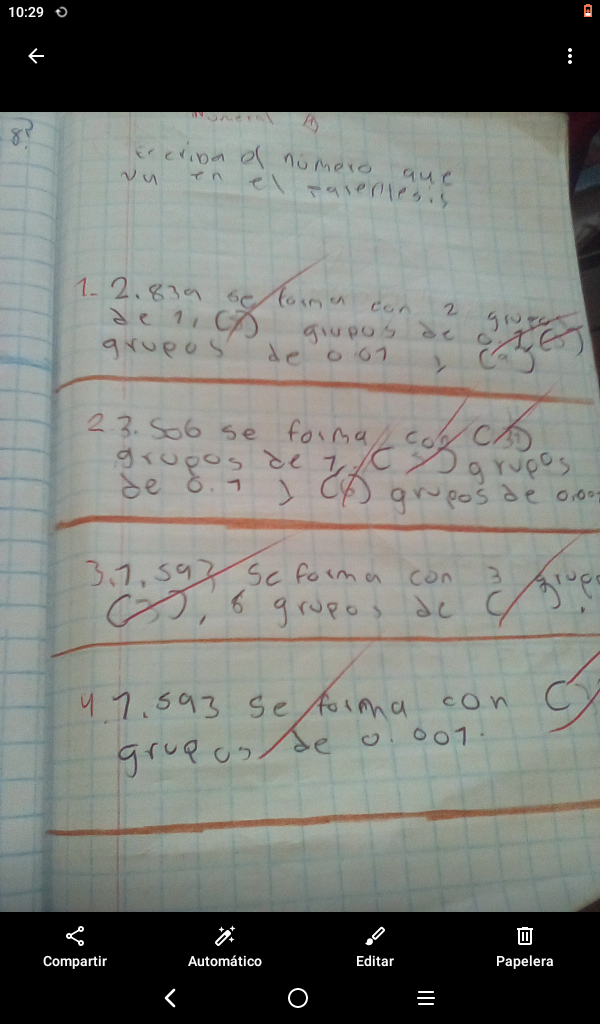 10:29
8?
Numeral
Escriba el número que
en el parentesis
1- 2.839 se forma con 2 grupos
de 1, ( ) grupos de 0.1, ( )
grupos de 0.01 y ( )
2 3.506 se forma con (3)
grupos de 1, (5) grupos
de 0.1 y (6) grupos de 0.001
3. 1.593 se forma con 3 grupo
( ), 6 grupos de ( ).
4. 1.593 se forma con ( )
grupos de 0.001.
Compartir
Automático
Editar
Papelera